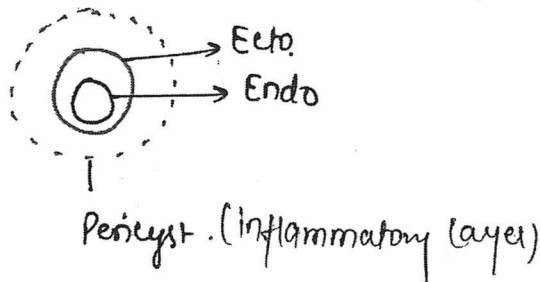 Ecto.
Endo
Pericyst. (inflammatory layer)